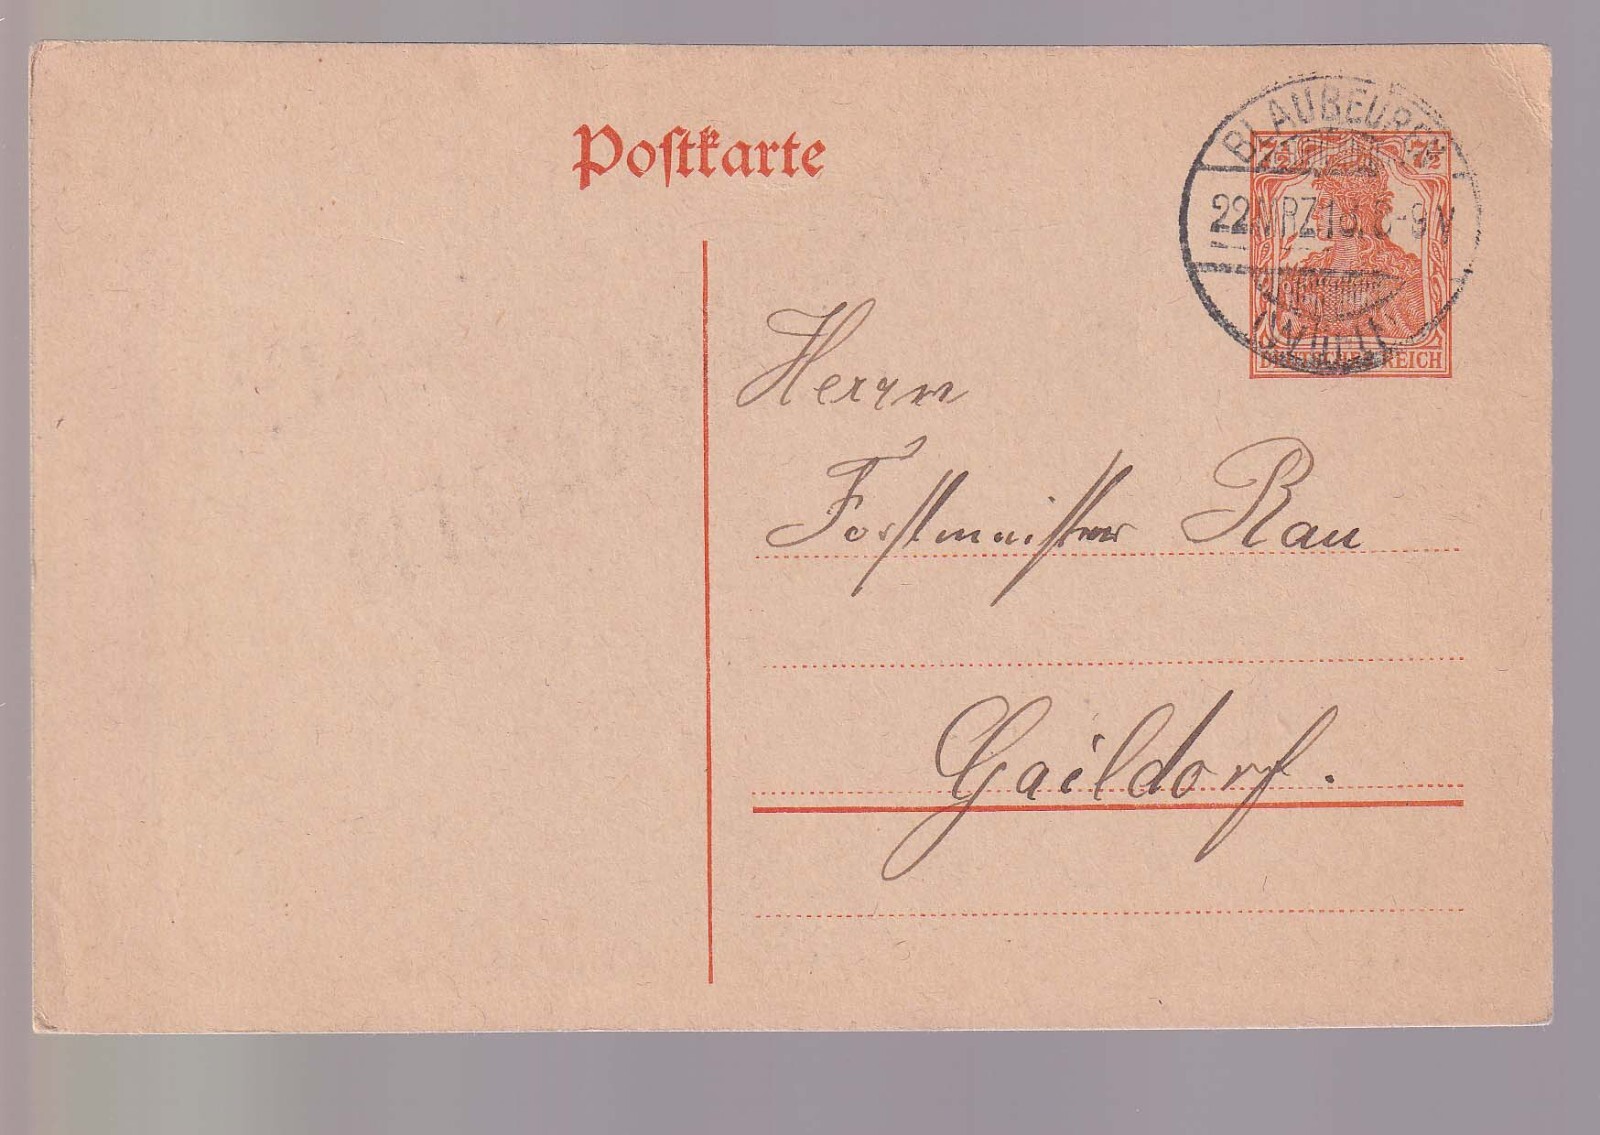 Postkarte
BLAUBEUREN
22 MRZ 18. 8-9 V
7½ 7½
DEUTSCHES REICH
Herrn
Forstmeister Rau
Gaildorf.